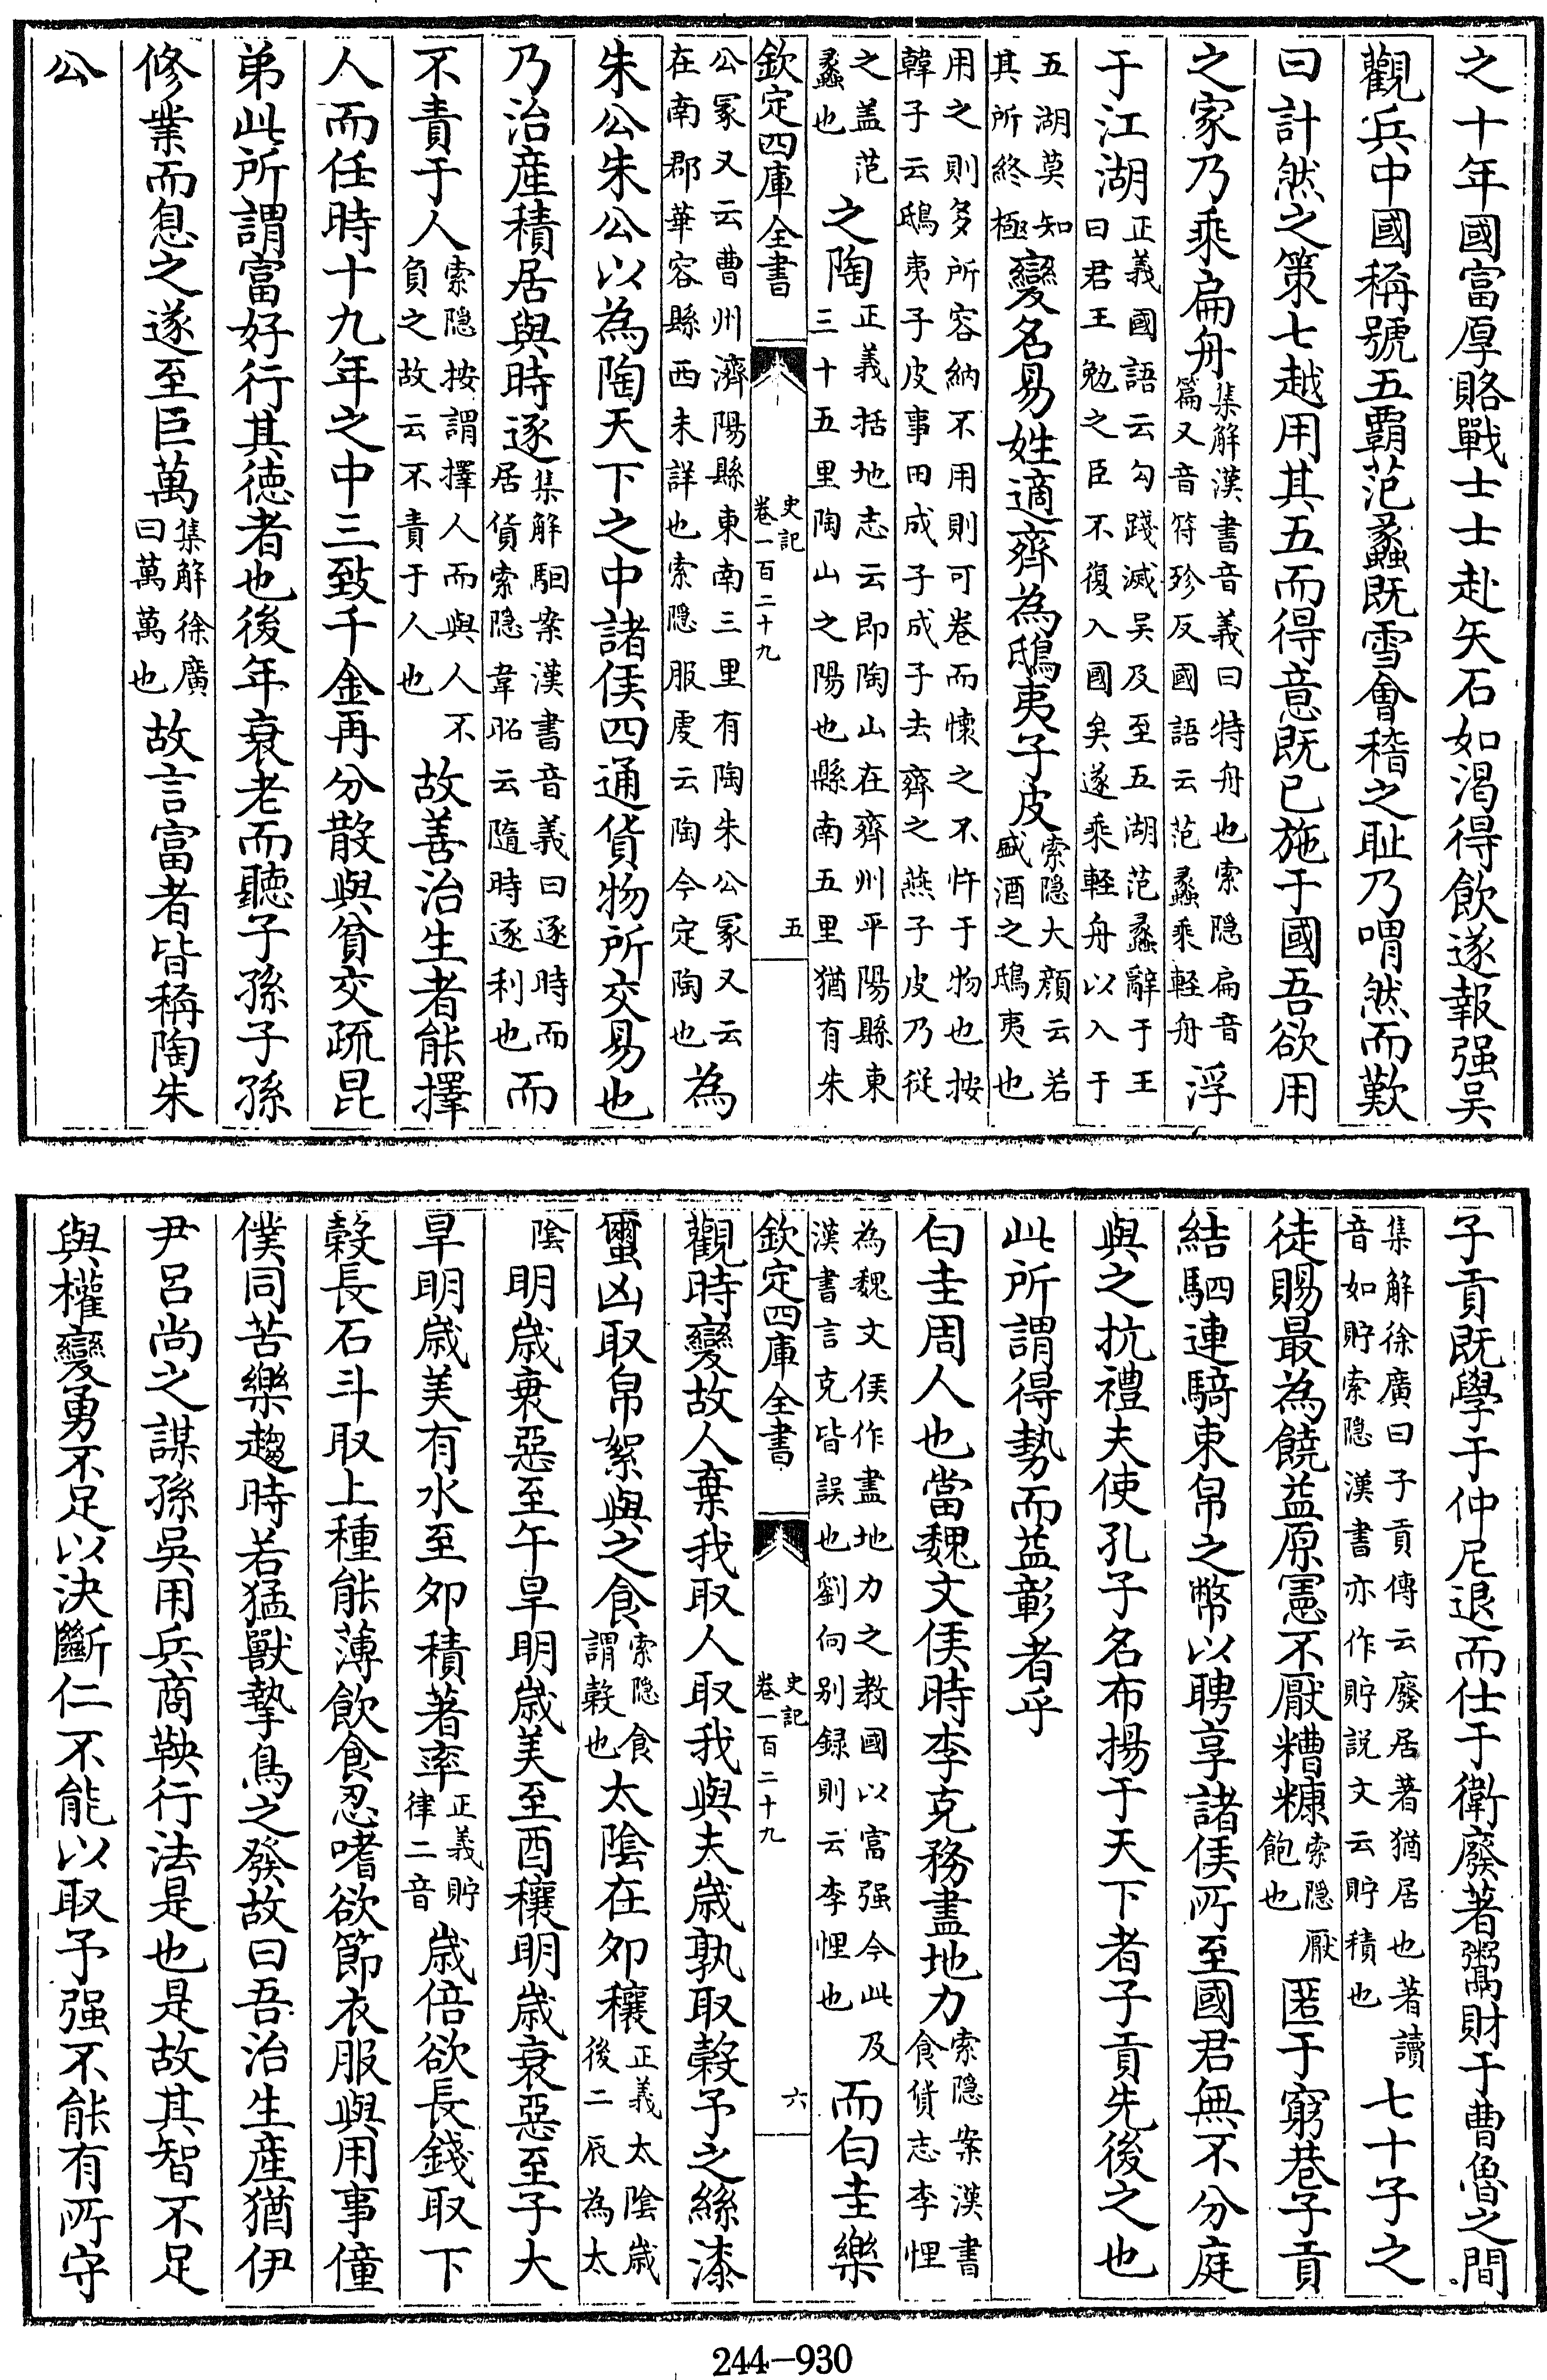 之十年國富厚賂戰士士赴矢石如渴得飲遂報强吴
觀兵中國稱號五覇范蠡既雪會稽之耻乃喟然而歎
曰計然之策七越用其五而得意既已施于國吾欲用
之家乃乗扁舟集解漢書音義曰特舟也索隐扁音篇又音符殄反國語云范蠡乗輕舟浮
于江湖正義國語云勾踐滅吴及至五湖范蠡辭于王曰君王勉之臣不復入國矣遂乗輕舟以入于
五湖莫知其所終極變名易姓適齊為鴟夷子皮索隐大顔云若盛酒之鴟夷也
用之則多所容納不用則可卷而懷之不忤于物也按韓子云鴟夷子皮事田成子成子去齊之燕子皮乃從
之盖范蠡也之陶正義括地志云即陶山在齊州平陽縣東三十五里陶山之陽也縣南五里猶有朱
欽定四庫全書 史記卷一百二十九 五
公冢又云曹州濟陽縣東南三里有陶朱公冢又云在南郡華容縣西未詳也索隐服虔云陶今定陶也為
朱公朱公以為陶天下之中諸侯四通貨物所交易也
乃治産積居與時逐集解駰案漢書音義曰逐時而居貨索隐韋昭云隨時逐利也而
不責于人索隐按謂擇人而與人不負之故云不責于人也故善治生者能擇
人而任時十九年之中三致千金再分散與貧交疏昆
弟此所謂富好行其徳者也後年衰老而聽子孫子孫
修業而息之遂至巨萬集解徐廣曰萬萬也故言富者皆稱陶朱
公
子貢既學于仲尼退而仕于衛廢著鬻財于曹魯之間
集解徐廣曰子貢傳云廢居著猶居也著讀音如貯索隐漢書亦作貯説文云貯積也七十子之
徒賜最為饒益原憲不厭糟糠索隐厭飽也匿于窮巷子貢
結駟連騎束帛之幣以聘享諸侯所至國君無不分庭
與之抗禮夫使孔子名布揚于天下者子貢先後之也
此所謂得勢而益彰者乎
白圭周人也當魏文侯時李克務盡地力索隐案漢書食貨志李悝
為魏文侯作盡地力之教國以富强今此及漢書言克皆誤也劉向别録則云李悝也而白圭樂
欽定四庫全書 史記卷一百二十九 六
觀時變故人棄我取人取我與夫歲孰取穀予之絲漆
蠒凶取帛絮與之食索隐食謂穀也太陰在夘穰正義太陰歲後二辰為太
陰明歲衰惡至午旱明歲美至酉穰明歲衰惡至子大
旱明歲美有水至夘積著率正義貯律二音歲倍欲長錢取下
穀長石斗取上種能薄飲食忍嗜欲節衣服與用事僮
僕同苦樂趨時若猛獸摯鳥之發故曰吾治生産猶伊
尹呂尚之謀孫吳用兵商鞅行法是也是故其智不足
與權變勇不足以決斷仁不能以取予强不能有所守
244-930